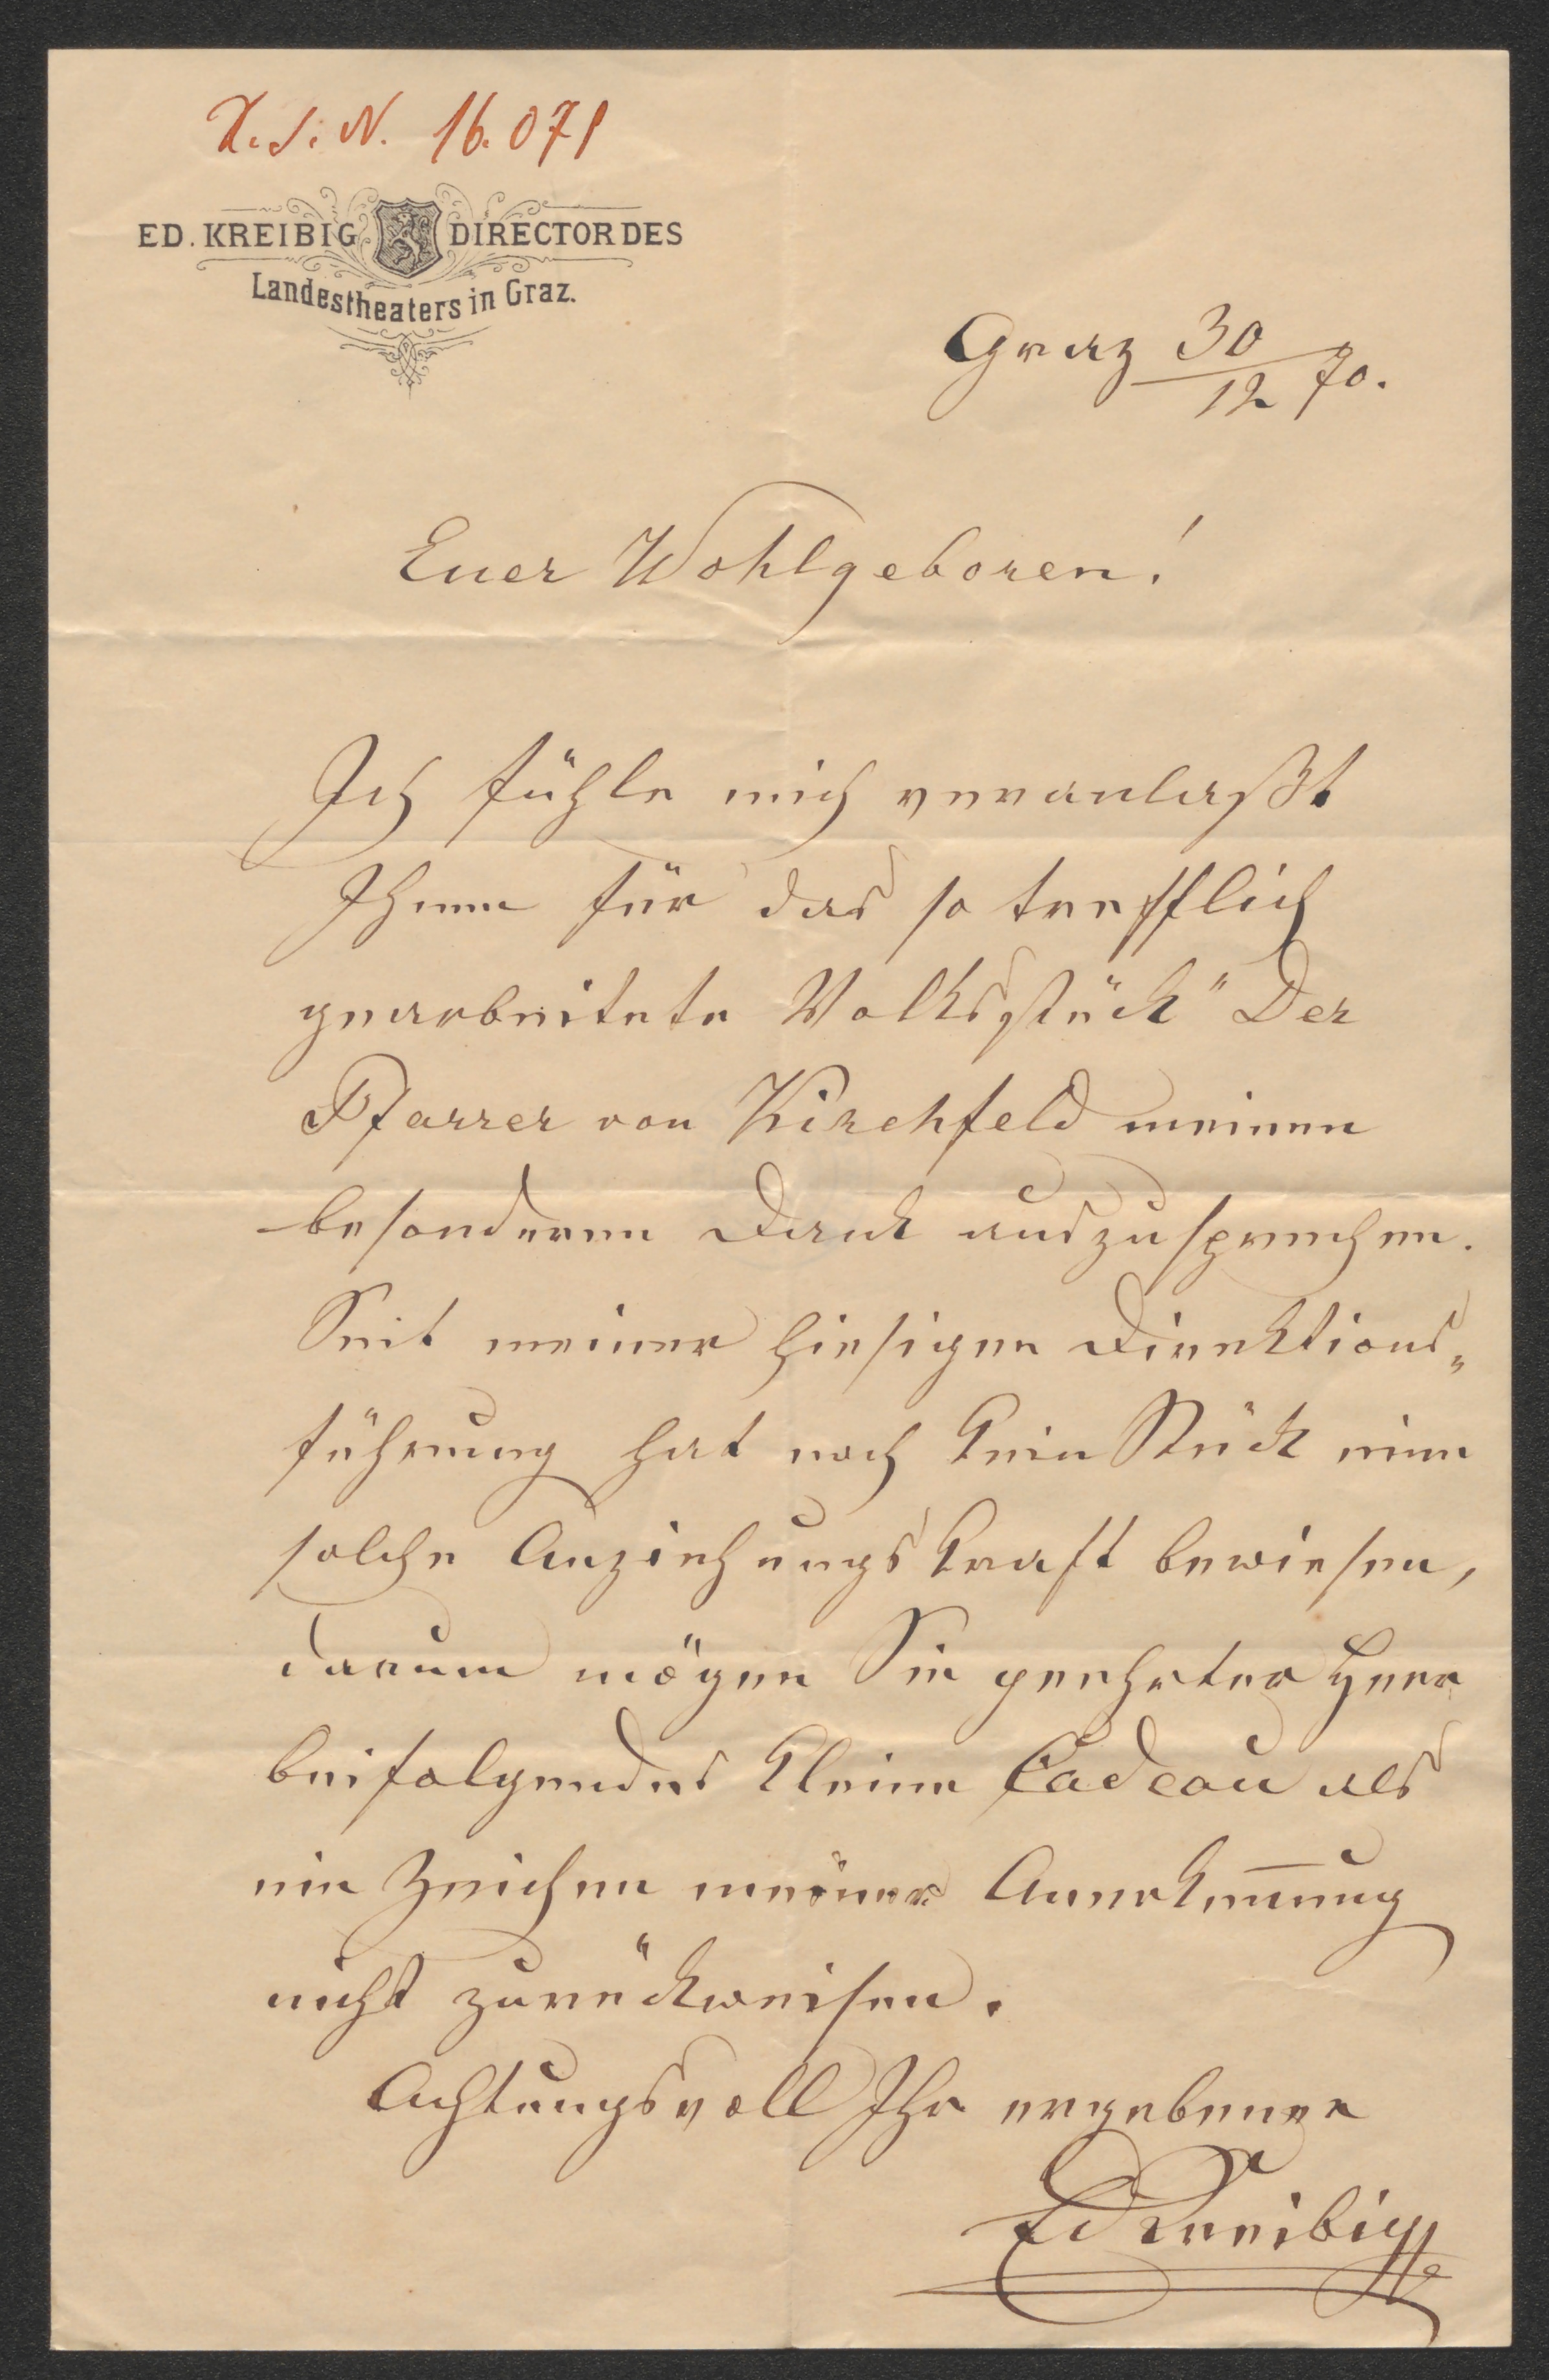 I.S.N. 16.071
ED. KREIBIG DIRECTOR DES
Landestheaters in Graz.
Graz 30/12 70.
Euer Wohlgeboren!
Ich fühle mich veranlaßt
Ihnen für das so trefflich
gearbeitete Volksstück "Der
Pfarrer von Kirchfeld meinen
besonderen Dank auszusprechen.
Seit meiner hiesigen Direktions„
führung hat noch kein Stück eine
solche Anziehungskraft bewiesen,
darum mögen Sie geehrter Herr
beifolgendes kleine Cadeau als
ein Zeichen meiner Anerkennung
nicht zurückweisen.
Achtungsvoll Ihr ergebener
Ed Kreibig